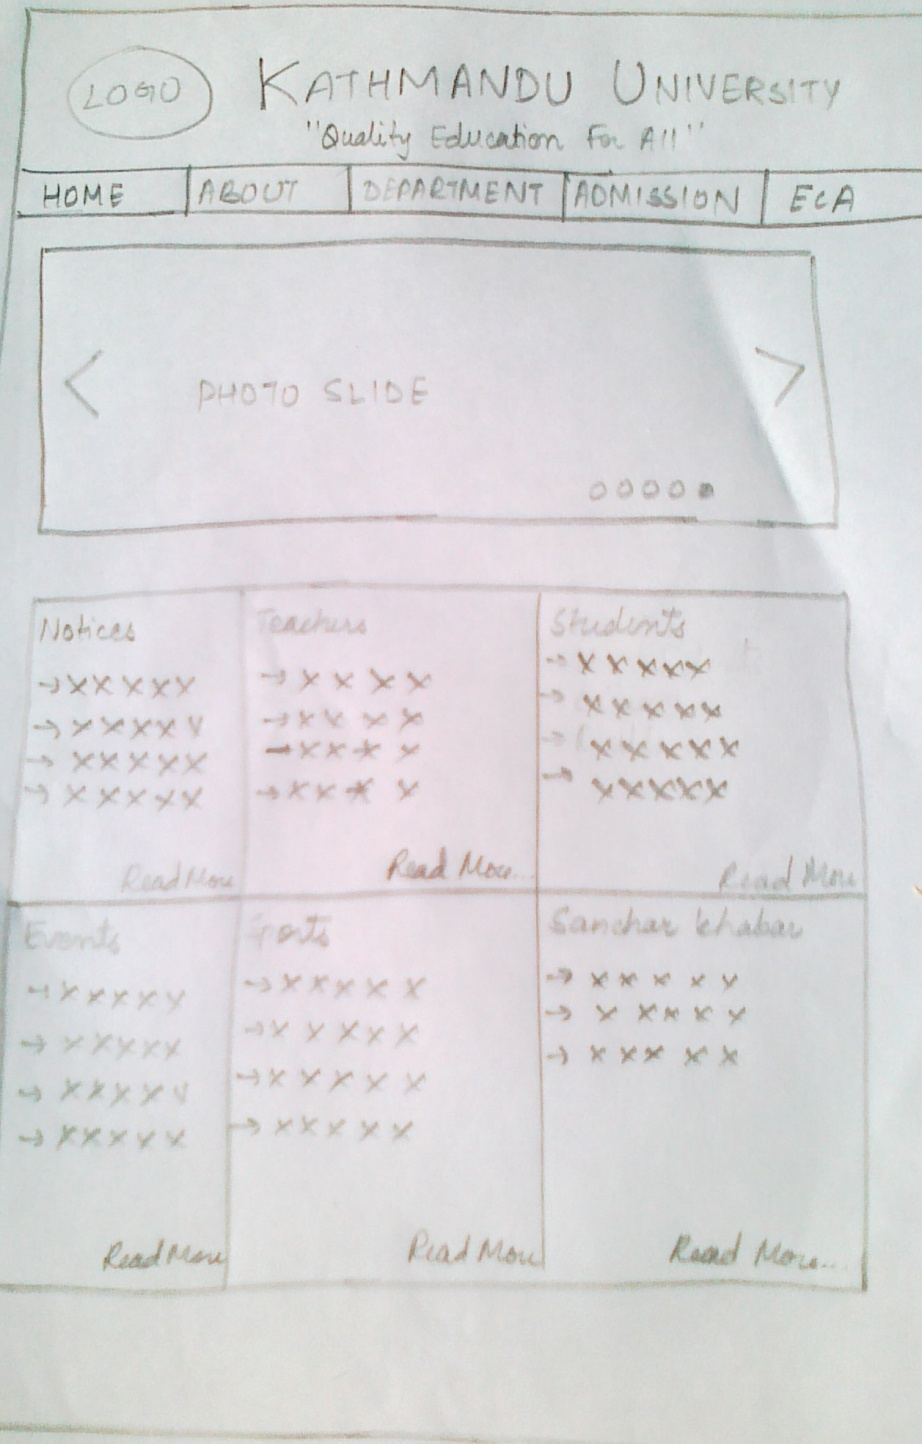 LOGO
KATHMANDU UNIVERSITY
"Quality Education For All"
HOME
ABOUT
DEPARTMENT
ADMISSION
ECA
< PHOTO SLIDE >
Notices
→ X X X X X
→ X X X X X
→ X X X X X
→ X X X X X
Read More
Teachers
→ X X X X
→ X X X X
→ X X X X
→ X X X X
Read More...
Students
→ X X X X X
→ X X X X X
→ X X X X X
→ X X X X X
Read More
Events
→ X X X X X
→ X X X X X
→ X X X X X
→ X X X X X
Read More
Sports
→ X X X X X
→ X X X X X
→ X X X X X
→ X X X X X
Read More
Sanchar Khabar
→ X X X X X
→ X X X X X
→ X X X X X
Read More...